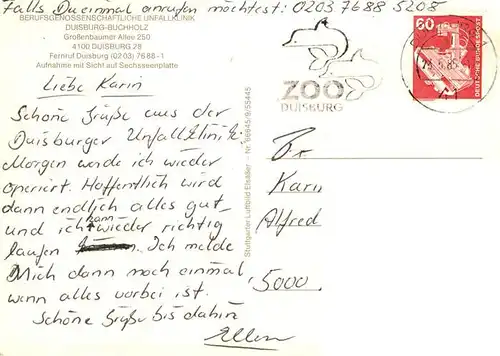 Falls Du einmal anrufen möchtest: 0203 7688 5208
BERUFSGENOSSENSCHAFTLICHE UNFALLKLINIK
DUISBURG-BUCHHOLZ
Großenbaumer Allee 250
4100 DUISBURG 28
Fernruf Duisburg (0203) 7688-1
Aufnahme mit Sicht auf Sechsseenplatte
Liebe Karin
Schöne Grüße aus der
Duisburger Unfallklinik.
Morgen werde ich wieder
operiert. Hoffentlich wird
dann endlich alles gut
und ich kann wieder richtig
laufen. Ich melde
Mich dann noch einmal
wenn alles vorbei ist.
Schöne Grüße bis dahin
Ellen
Stuttgarter Luftbild Elsäßer – Nr. 86645/9/55445
ZOO
DUISBURG
60
DEUTSCHE BUNDESPOST
Karin
Alfred
5000